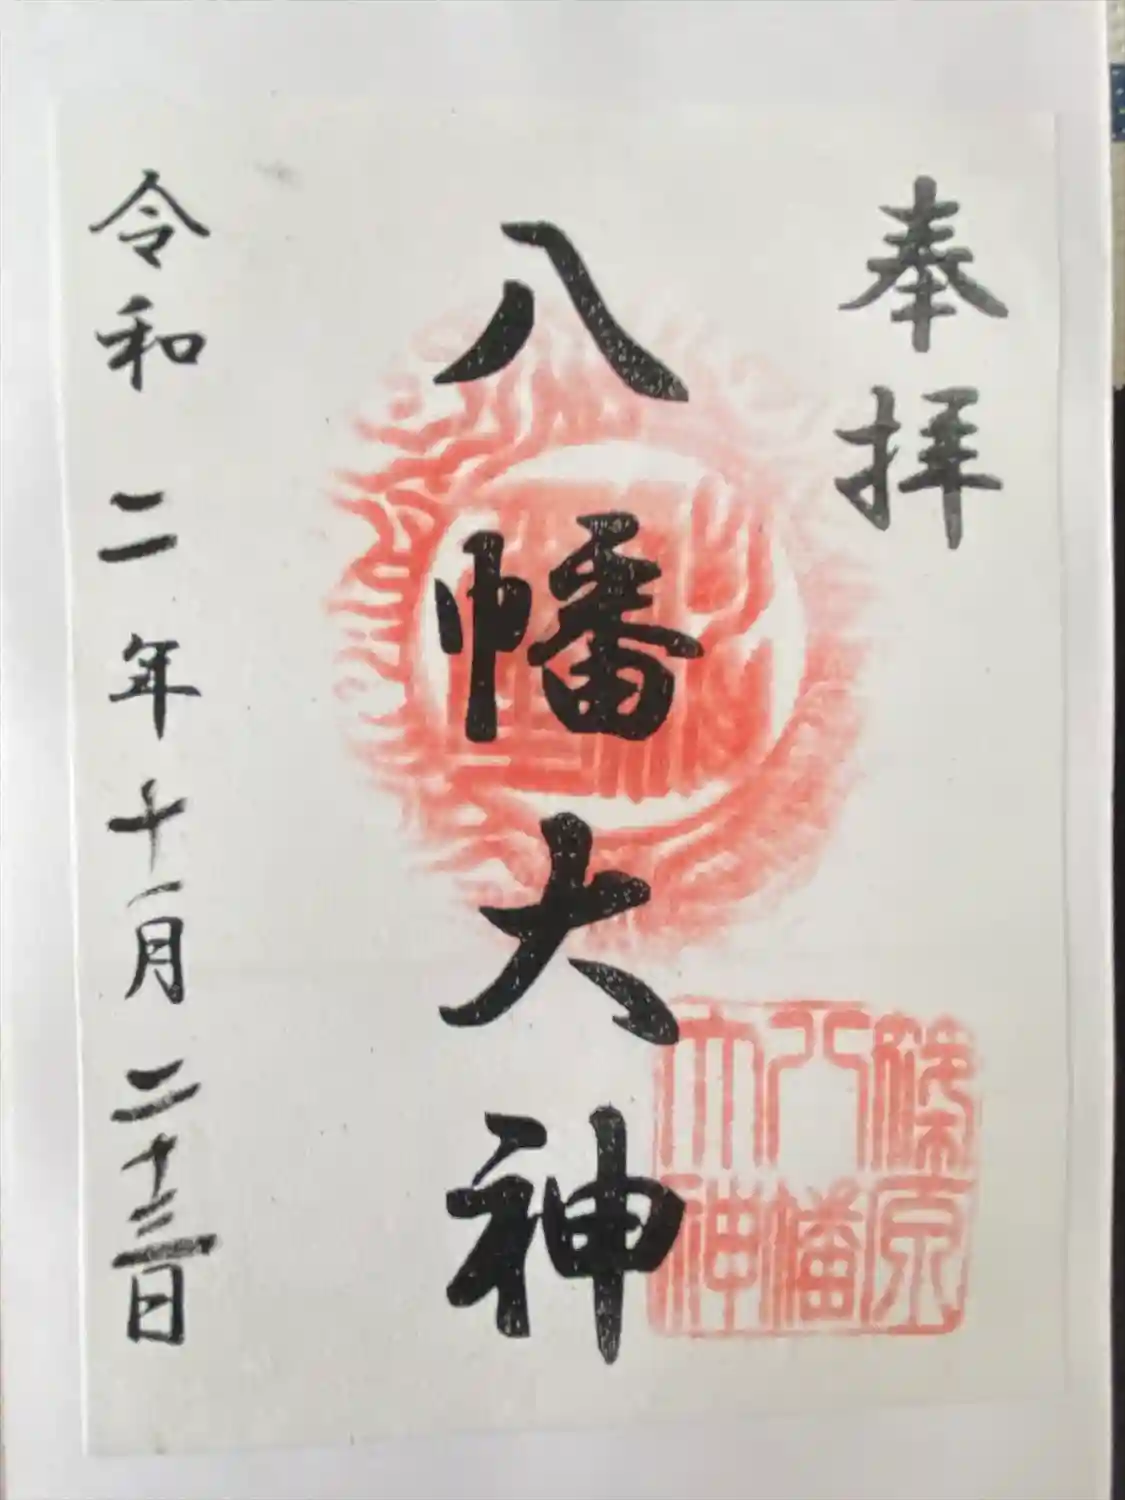 奉拝
八幡大神
篠原
八幡
大神
令和二年十月二十三日